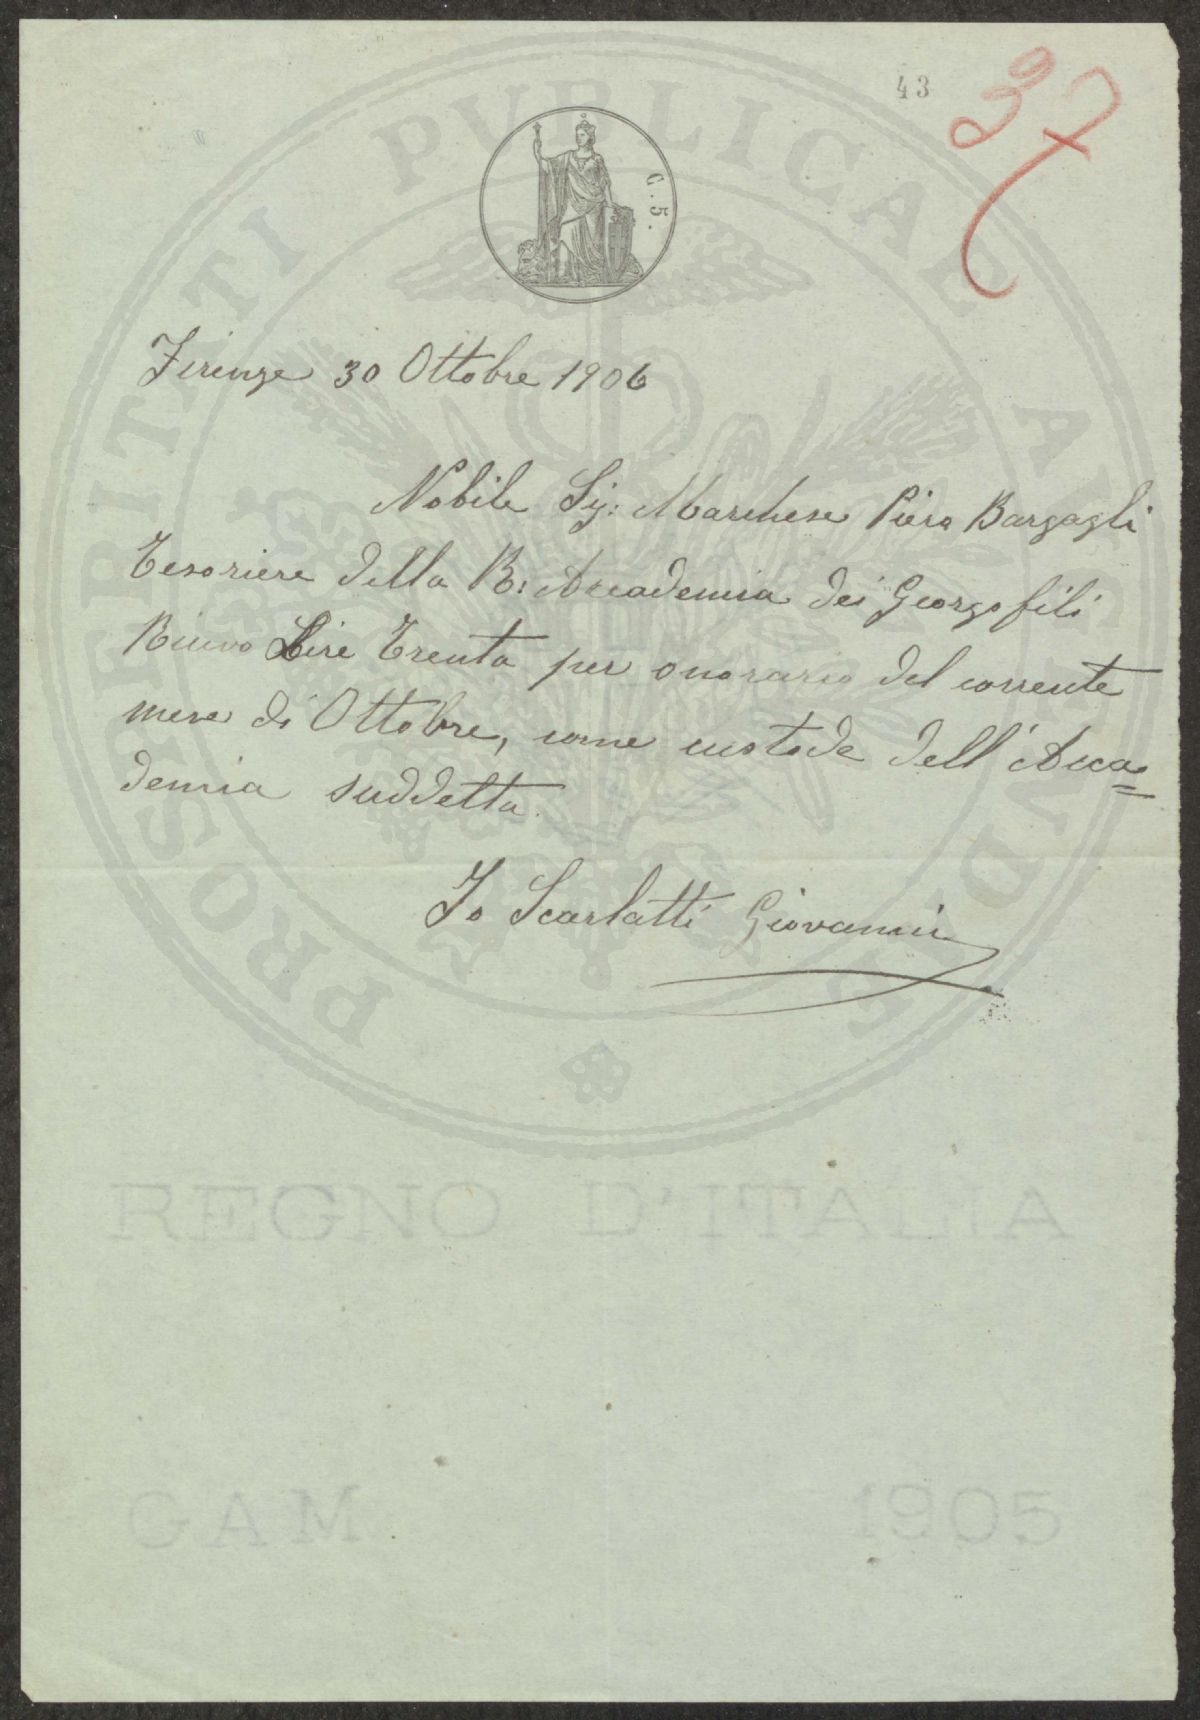 43
37
G. 5.
PROSPERITATI PUBLICAE AUGENDAE
Firenze 30 Ottobre 1906
Nobile Sig: Marchese Piero Bargagli
Tesoriere della R: Accademia dei Georgofili
Ricevo Lire Trenta per onorario del corrente
mese di Ottobre, come custode dell'Acca=
demia suddetta.
Io Scarlatti Giovanni
REGNO D'ITALIA
GAM 1905